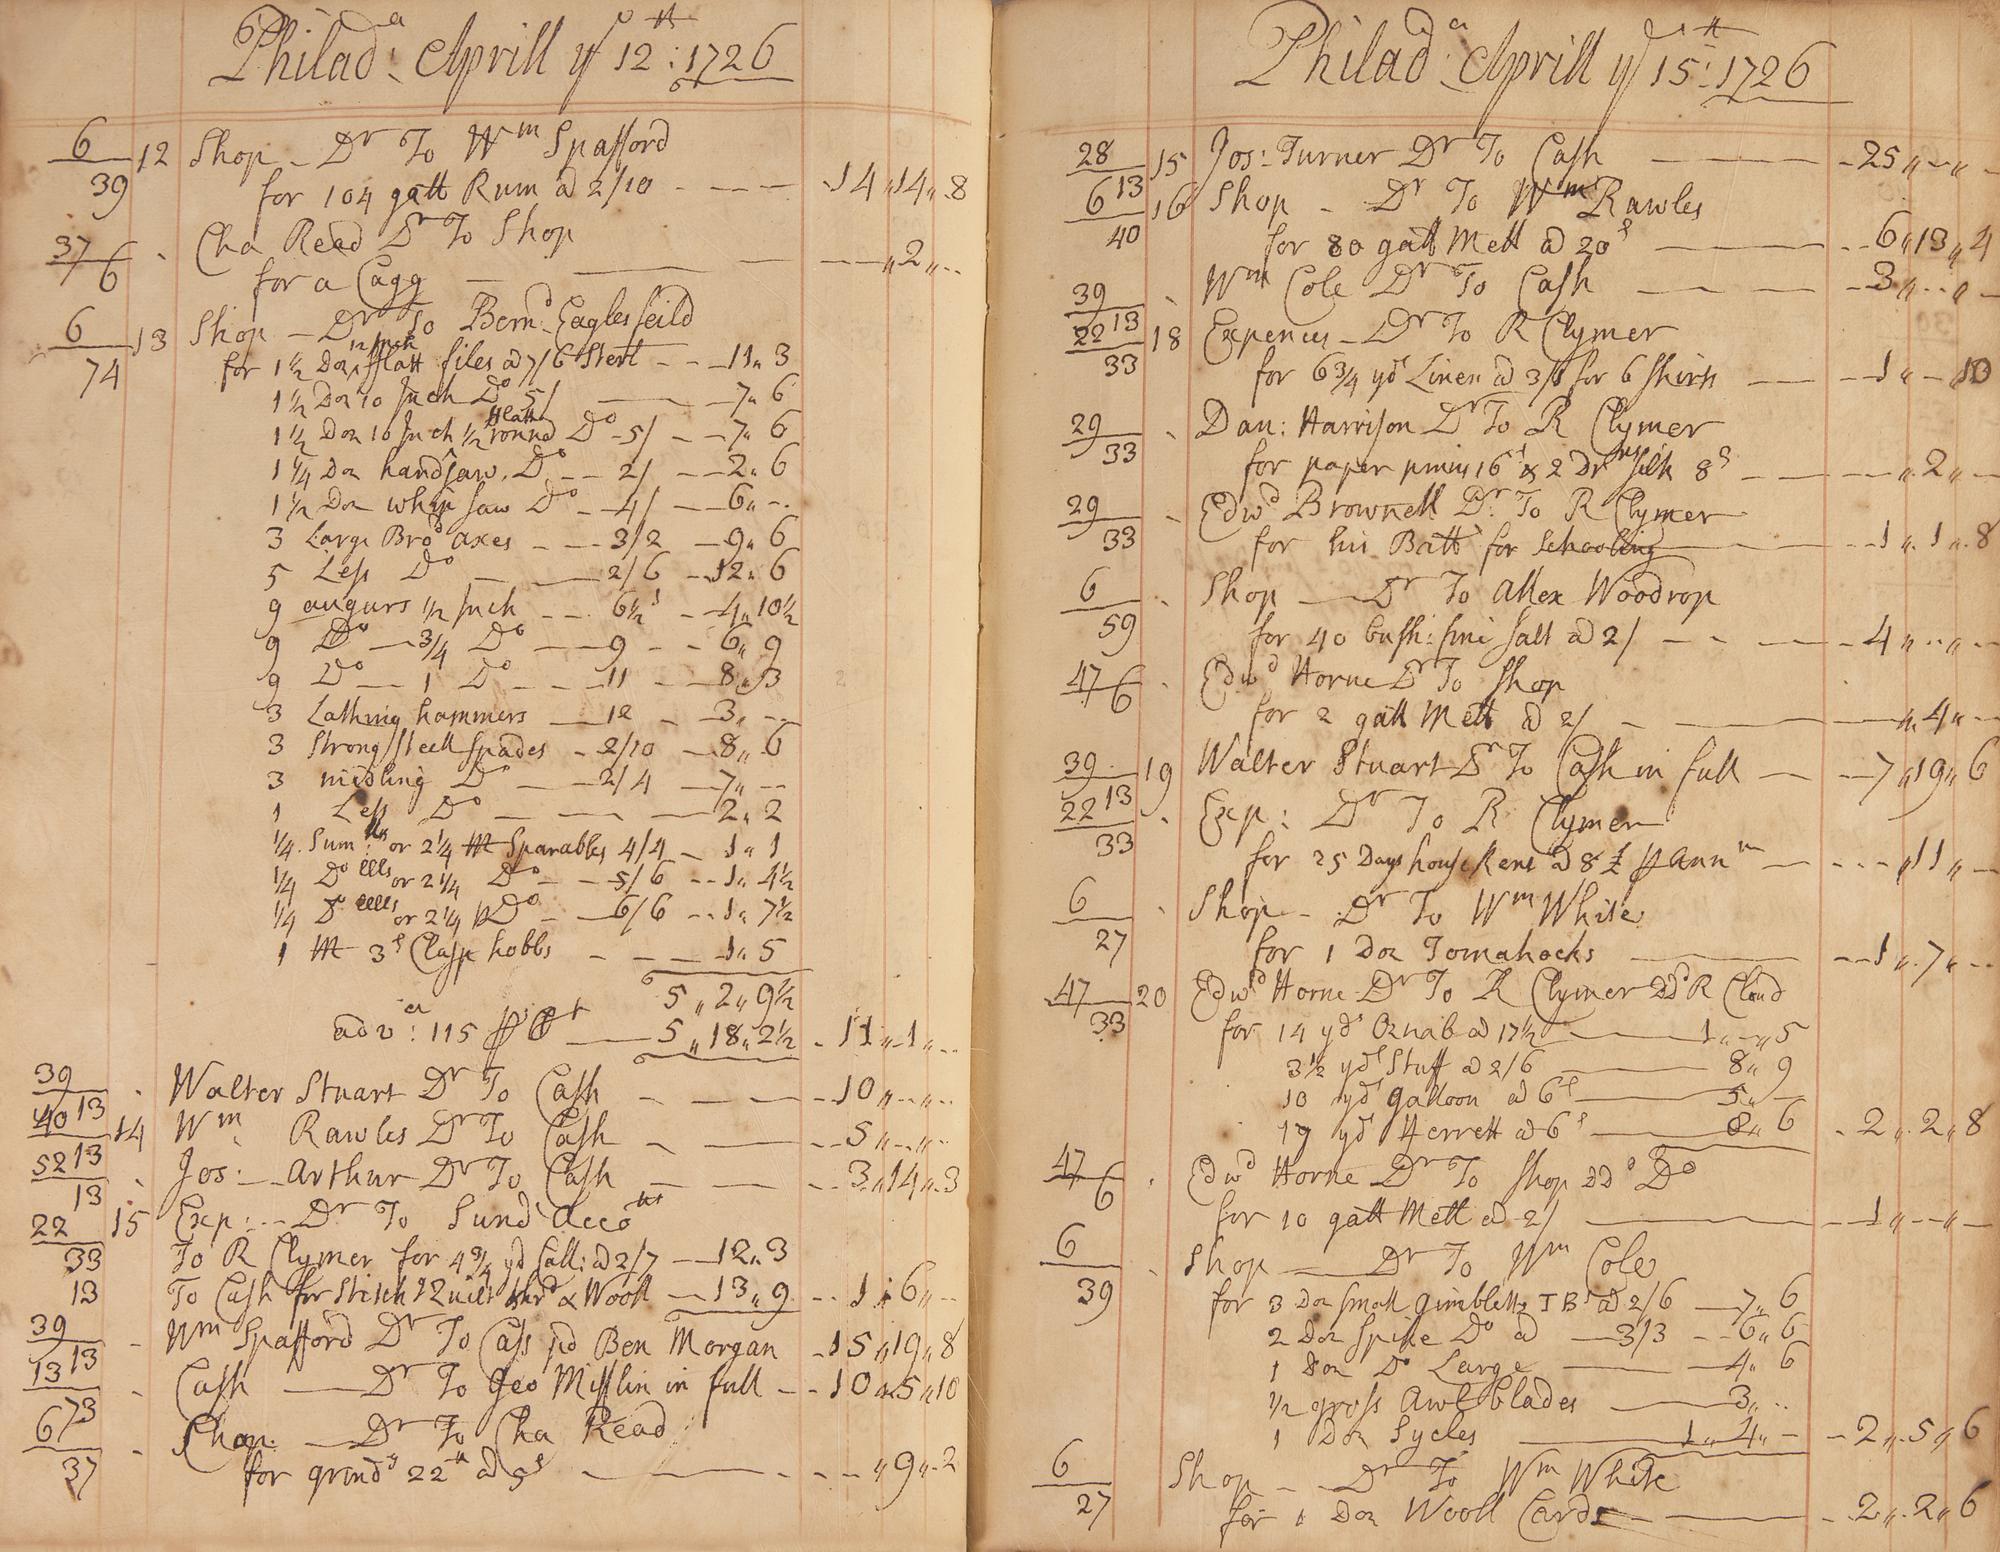 Philad.a Aprill ye 12th: 1726
6/39 12 Shop - Dr To Wm Spafford
for 104 gall Rum @ 2/10 - - - - 14 " 14 " 8
37/6 Cha Read Dr To Shop
for a Cagg - - - - " 2 " --
6/74 13 Shop - Dr To Bern:d Eaglesfeild
for 1 1/2 Doz 12 Inch fflatt files @ 7/6 Sterl - - 11 " 3
1 1/2 Doz 10 Inch Do 5/ - 7 " 6
1 1/2 Doz 10 Inch 1/2 round fflatt Do - 5/ - - 7 " 6
1 1/4 Doz handsaw Do - - 2/ - - 2 " 6
1 1/2 Doz whip saw Do - - 4/ - - 6 " --
3 Large Brod axes - - 3/2 - 9 " 6
5 Less Do - - 2/6 - 12 " 6
9 augurs 1/2 Inch - - 6 1/2 d - 4 " 10 1/2
9 Do - 3/4 Do - 9 - - 6 " 9
9 Do - 1 Do - - 11 - 8 " 3
3 Lathing hammers - 12 - 3 " --
3 Strong Steell Spades - 2/10 - 8 " 6
3 midling Do - 2/4 - 7 " --
1 Less Do - - - 2 " 2
1/4 Sum: or 2 1/4 M Sparables 4/4 - 1 " 1
1/4 Do or 2 1/4 Do - - 5/6 - - 1 " 4 1/2
1/4 Do or 2 1/4 Do - 6/6 - - 1 " 7 1/2
1 M 3d Clasp hobbs - - - 1 " 5
5 " 2 " 9 1/2
adv:a 115 p Ct - 5 " 18 " 2 1/2 - 11 " 1 " --
39/13 Walter Stuart Dr To Cash - - - 10 " -- " --
40/13 14 Wm Rawles Dr To Cash - - - 5 " -- " --
52/13 Jos: - Arthur Dr To Cash - - - 3 " 14 " 3
22 15 Exp: - - Dr To Sund Accots
33 To R Clymer for 4 3/4 yd Call: @ 2/7 - 12 " 3
13 To Cash for Stitch Quilt thrd & Wooll - 13 " 9 - - 1 " 6 " --
39/13 Wm Spafford Dr To Cash pd Ben Morgan - 15 " 19 " 8
13/73 Cash - Dr To Geo Mifflin in full - - 10 " 5 " 10
6/37 Shop - Dr To Cha Read
for grinds 22 @ 5d - - - " 9 " 2
Philad:a Aprill ye 15th: 1726
28/13 15 Jos: Turner Dr To Cash - 25 " -- " --
6/40 16 Shop - Dr To Wm Rawles
for 80 gall Mell @ 20d - - 6 " 13 " 4
39/13 Wm Cole Dr To Cash - - - 3 " -- " --
22/33 18 Expences - Dr To R Clymer
for 6 3/4 yds Linen @ 3/1 for 6 Shirts - - 1 " - 10
29/33 Dan: Harrison Dr To R Clymer
for paper 16d & 2 Drms Silk 8d - - - " 2 " --
29/33 Edwd Brownell Dr To R Clymer
for his Ball for Schooling - - 1 " 1 " 8
6/59 Shop - Dr To Allex Woodrop
for 40 bush: fine salt @ 2/ - - - 4 " -- " --
47/6 Edwd Horne Dr To Shop
for 2 gall Mell @ 2/ - - " 4 " --
39/13 19 Walter Stuart Dr To Cash in full - - 7 " 19 " 6
22/33 Exp: Dr To R Clymer
for 25 Days house Rent @ 8 £ p Annm - - - " 11 " --
6/27 Shop - Dr To Wm White
for 1 Doz Tomahocks - - 1 " 7 " --
47/33 20 Edwd Horne Dr To R Clymer dd R Cloud
for 14 yds Oznab @ 17 1/2 - 1 " - " 5
3 1/2 yds Stuff @ 2/6 - 8 " 9
10 yds galloon @ 6d - 5 " --
17 yds fferrett @ 6d - 8 " 6 - 2 " 2 " 8
47/6 Edwd Horne Dr To Shop dd Do
for 10 gall Mell @ 2/ - - 1 " -- " --
6/39 Shop - Dr To Wm Cole
for 3 Doz small gimbletts I B @ 2/6 - 7 " 6
2 Doz Spike Do @ - 3/3 - - 6 " 6
1 Doz Do Large - 4 " 6
1/2 gross Awl blades - 3 " --
1 Doz Sycles - 1 " 4 " - - 2 " 5 " 6
6/27 Shop - Dr To Wm White
for 1 Doz Wooll Cards - - 2 " 2 " 6